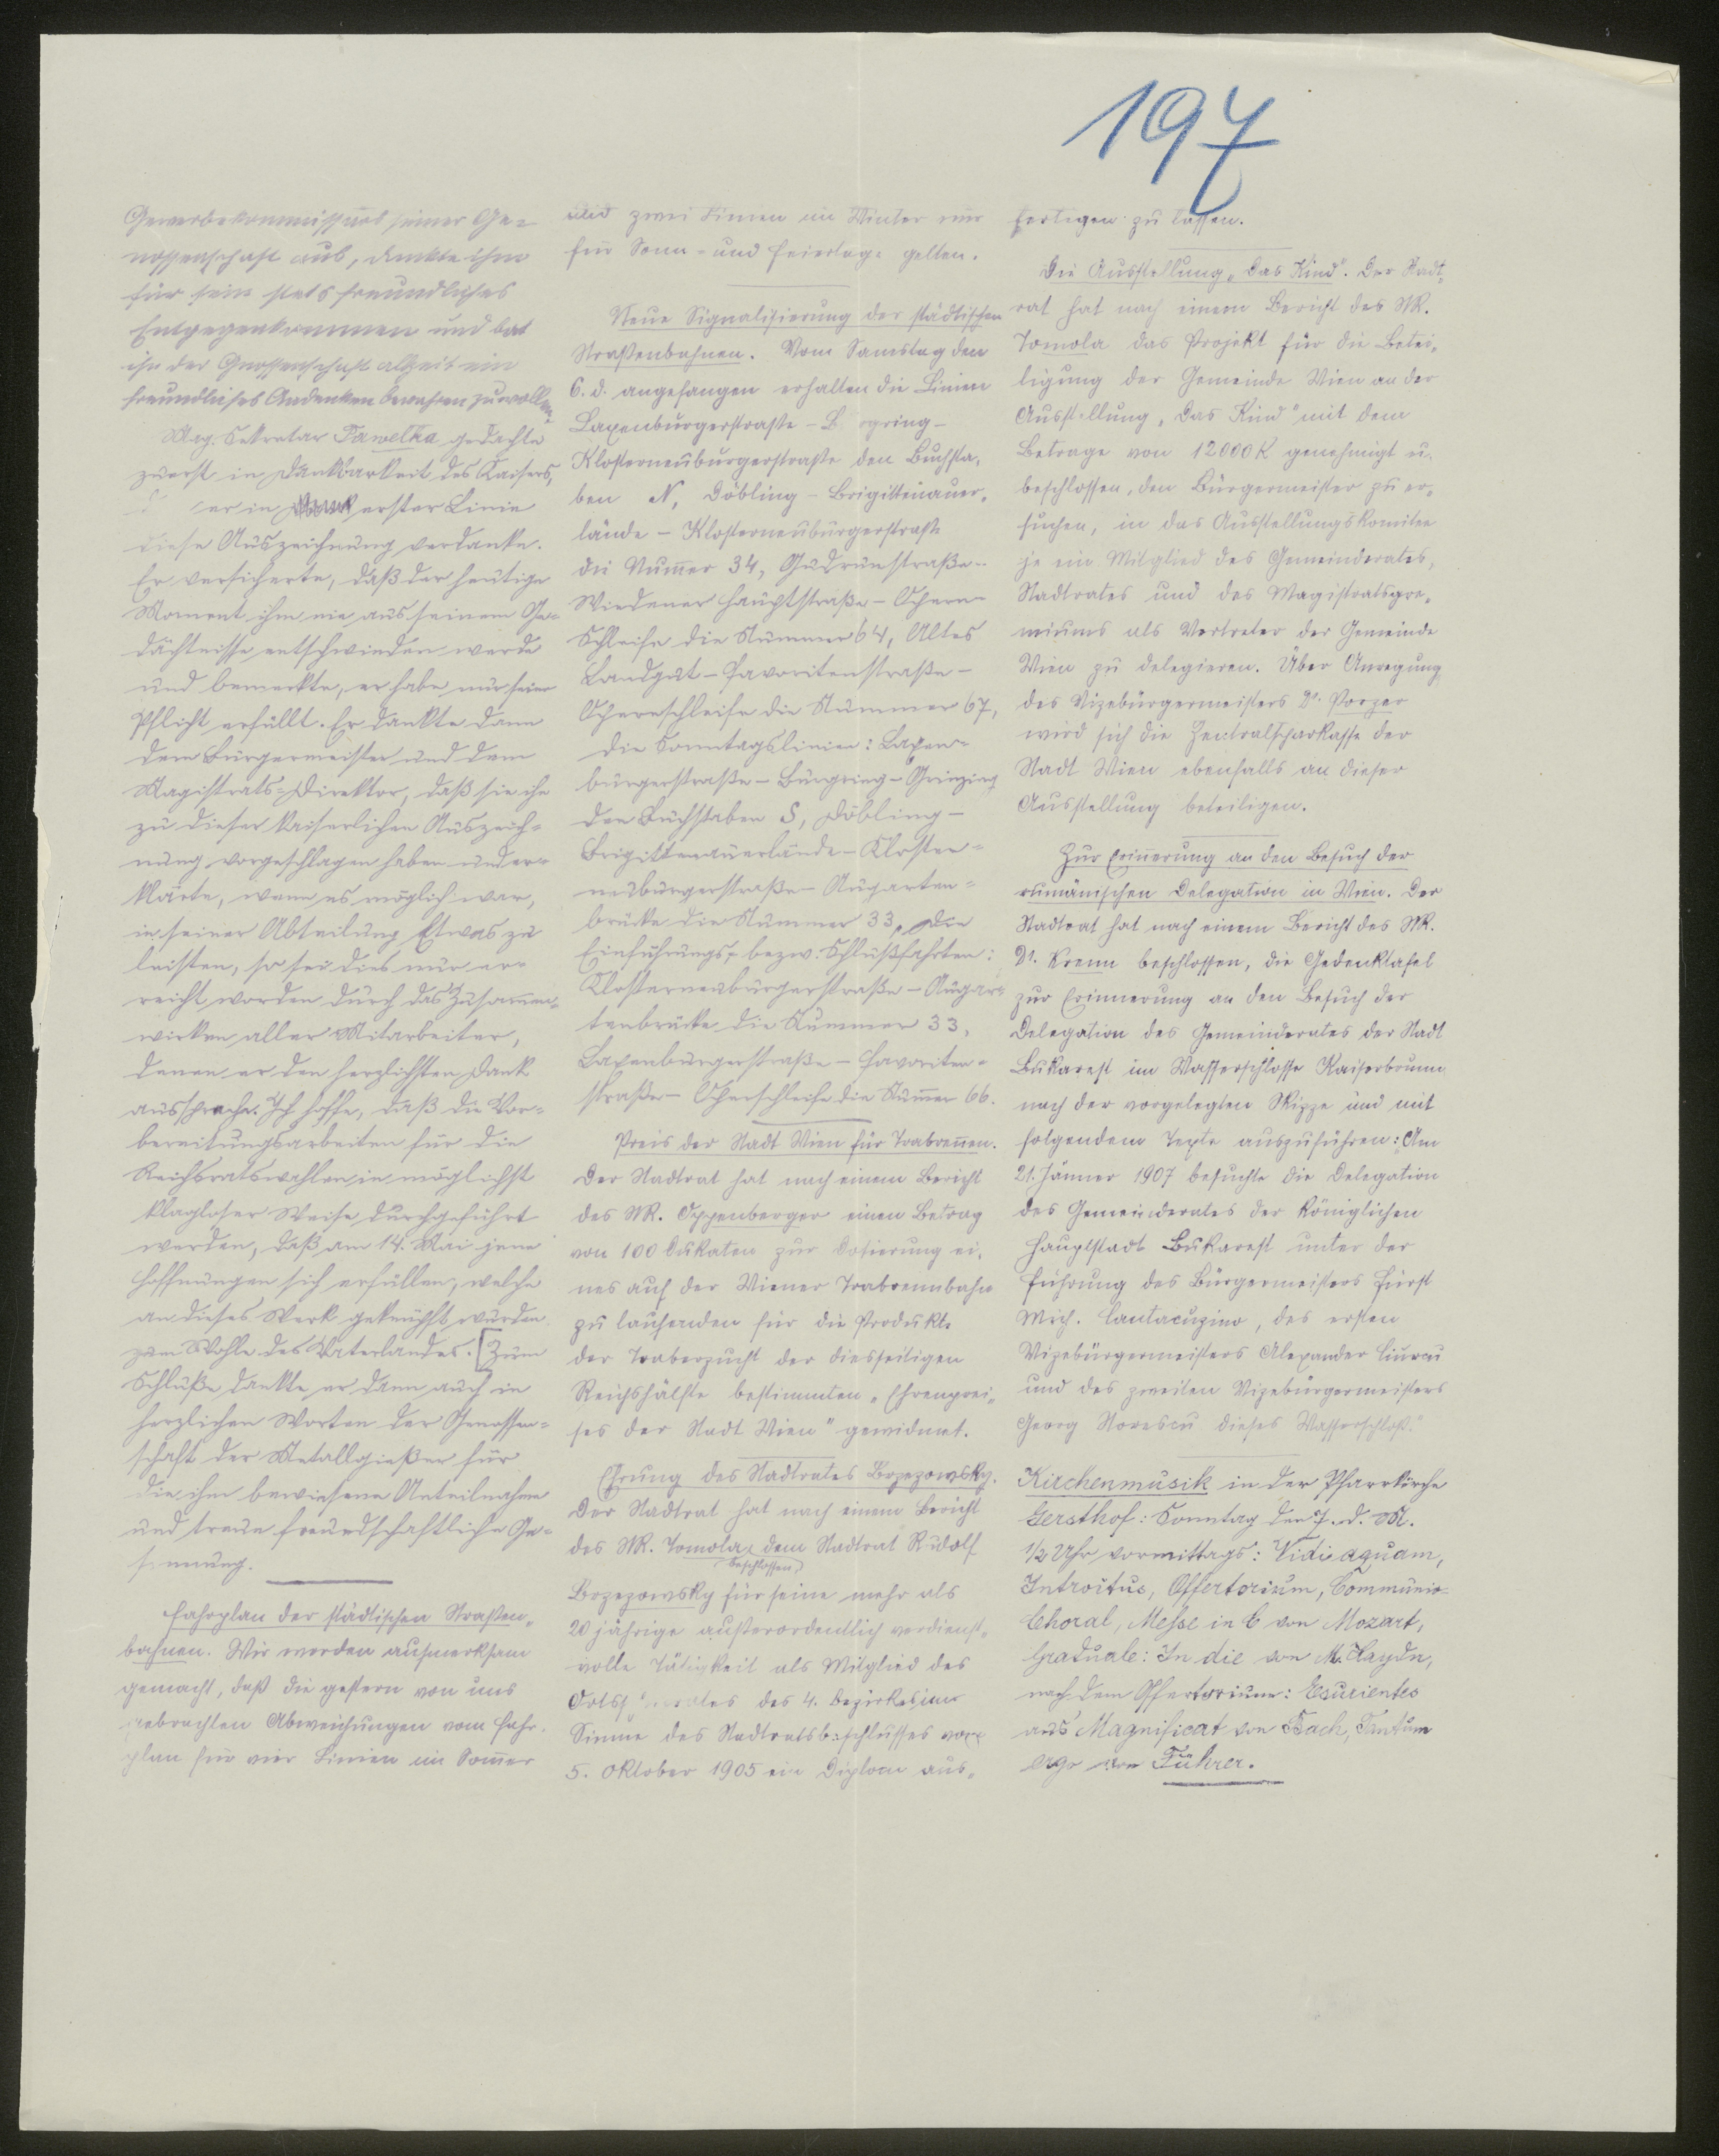 197
Gewerbekommissärs seiner Ge-
nossenschaft aus, dankte ihm
für sein stets freundliches
Entgegenkommen und bat
ihn der Genossenschaft allzeit ein
freundliches Andenken bewahren zu wollen.
Mag. Sekretär Pawelka gedachte
zuerst in Dankbarkeit des Kaisers,
er in erster Linie
diese Auszeichnung verdanke.
Er versicherte, daß der heutige
Moment ihm nie aus seinem Ge-
dächtnisse entschwinden werde
und bemerkte, er habe nur seine
Pflicht erfüllt. Er dankte dann
dem Bürgermeister und dem
Magistrats-Direktor, daß sie ihn
zu dieser kaiserlichen Auszeich-
nung vorgeschlagen haben und er-
klärte, wenn es möglich war,
in seiner Abteilung Etwas zu
leisten, so sei dies nur er-
reicht worden durch das Zusam̄en-
wirken aller Mitarbeiter,
denen er den herzlichsten Dank
ausspreche. Ich hoffe, daß die Vor-
bereitungsarbeiten für die
Reichsratswahlen in möglichst
klagloser Weise durchgeführt
werden, daß am 14. Mai jene
Hoffnungen sich erfüllen, welche
an dieses Werk geknüpft wurden
zum Wohle des Vaterlandes. [Zum
Schluße dankte er dann auch in
herzlichen Worten der Genossen-
schaft der Metallgießer für
die ihm bewiesene Anteilnahme
und treue freundschaftliche Ge-
sinnung.
Fahrplan der städtischen Straßen-
bahnen. Wir werden aufmerksam
gemacht, daß die gestern von uns
gebrachten Abweichungen vom Fahr-
plan für vier Linien im Som̄er
und zwei Linien im Winter nur
für Sonn- und Feiertage gelten.
Neue Signalisierung der städtischen
Straßenbahnen. Vom Samstag den
6. d. angefangen erhalten die Linien
Laxenburgerstraße - Burgring -
Klosterneuburgerstraße den Buchsta-
ben N, Döbling - Brigittenauer-
lände - Klosterneuburgerstraße
die Num̄er 34, Gudrunstraße -
Wiedener Hauptstraße - Opern-
Schleife die Nummer 64, Altes
Landgut - Favoritenstraße -
Opernschleife die Nummer 67,
die Sonntagslinien: Laxen-
burgerstraße - Burgring - Grinzing
den Buchstaben S, Döbling -
Brigittenauerlände - Kloster-
neuburgerstraße - Augarten-
brücke die Nummer 33, die
Einführungs- bezw. Schlußfahrten:
Klosterneuburgerstraße - Augar-
tenbrücke die Nummer 33,
Laxenburgerstraße - Favoriten-
straße - Opernschleife die Num̄er 66.
Preis der Stadt Wien für Trabren̄en.
Der Stadtrat hat nach einem Bericht
des StR. Oppenberger einen Betrag
von 100 Dukaten zur Dotierung ei-
nes auf der Wiener Trabrennbahn
zu laufenden für die Produkte
der Traberzucht der diesseitigen
Reichshälfte bestimmten „Ehrenprei-
ses der Stadt Wien" gewidmet.
Ehrung des Stadtrates Brzezowsky.
Der Stadtrat hat nach einem Bericht
des StR. Tomola, dem Stadtrat Rudolf
beschlossen,
Brzezowsky für seine mehr als
20jährige außerordentlich verdienst-
volle Tätigkeit als Mitglied des
des 4. Bezirkes im
Sinne des Stadtratsbeschlusses vom
5. Oktober 1905 ein Diplom aus-
fertigen zu lassen.
Die Ausstellung „Das Kind". Der Stadt-
rat hat nach einem Bericht des StR.
Tomola das Projekt für die Betei-
ligung der Gemeinde Wien an der
Ausstellung „Das Kind" mit dem
Betrage von 12000 K genehmigt u.
beschlossen, den Bürgermeister zu er-
suchen, in das Ausstellungskomitee
je ein Mitglied des Gemeinderates,
Stadtrates und des Magistratsgre-
miums als Vertreter der Gemeinde
Wien zu delegieren. Über Anregung
des Vizebürgermeisters Dr. Porzer
wird sich die Zentralsparkasse der
Stadt Wien ebenfalls an dieser
Ausstellung beteiligen.
Zur Erin̄erung an den Besuch der
rumänischen Delegation in Wien. Der
Stadtrat hat nach einem Bericht des StR.
Dr. Krenn beschlossen, die Gedenktafel
zur Erinnerung an den Besuch der
Delegation des Gemeinderates der Stadt
Bukarest im Wasserschlosse Kaiserbrunn
nach der vorgelegten Skizze und mit
folgendem Texte auszuführen: „Am
21. Jänner 1907 besuchte die Delegation
des Gemeinderates der königlichen
Hauptstadt Bukarest unter der
Führung des Bürgermeisters Fürst
Mich. Cantacuzino, des ersten
Vizebürgermeisters Alexander Ciurcu
und des zweiten Vizebürgermeisters
Georg Norescu dieses Wasserschloß."
Kirchenmusik in der Pfarrkirche
Gersthof: Sonntag den 7. d. M.
1/2 Uhr vormittags: Vidi aquam,
Introitus, Offertorium, Communio-
Choral, Messe in C von Mozart,
Graduale: In die von M. Haydn,
nach dem Offertorium: Esurientes
aus Magnificat von Bach, Tantum
ergo von Führer.